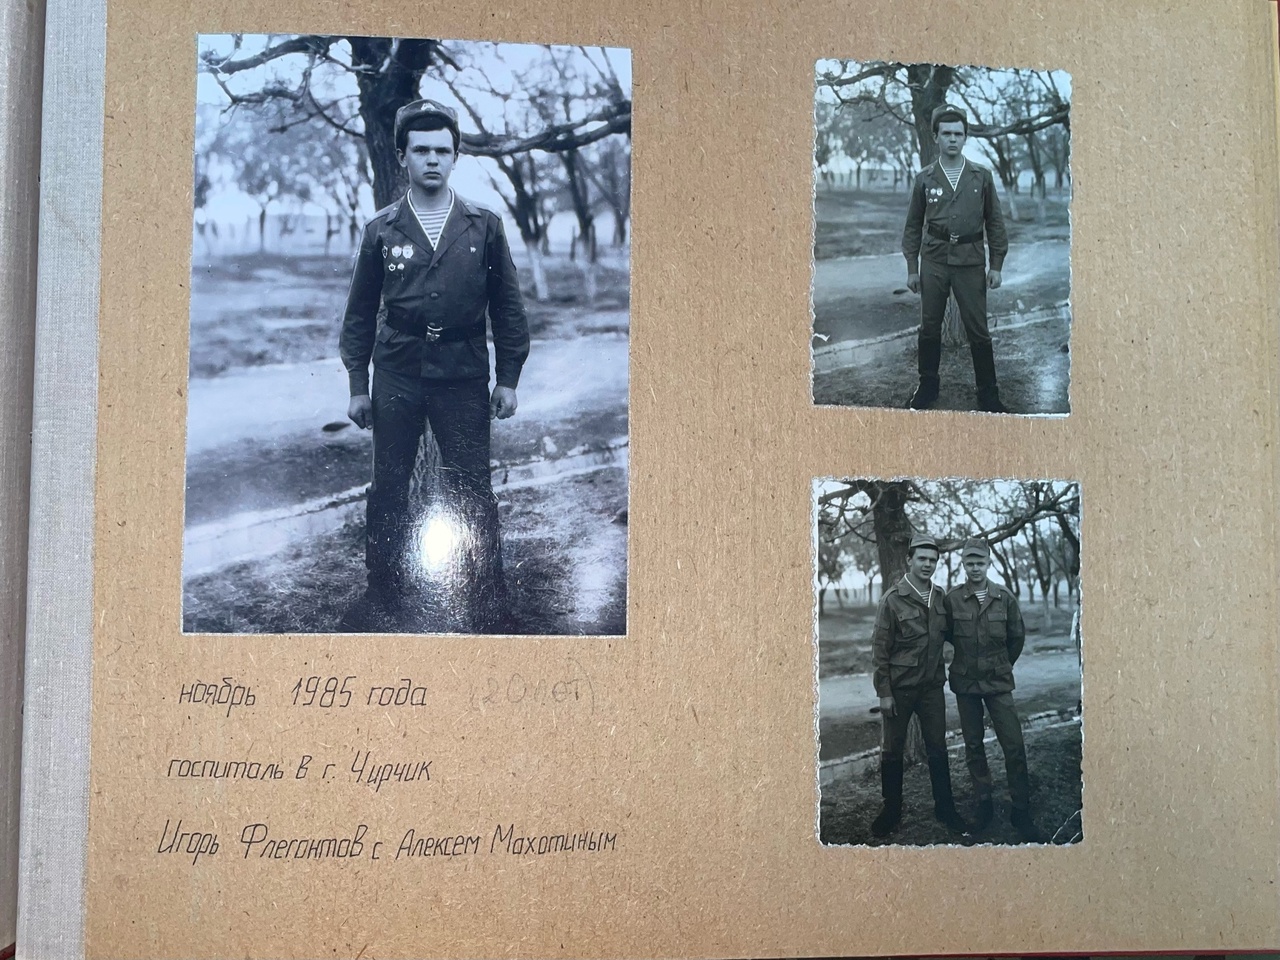 ноябрь 1985 года (20 лет)
госпиталь в г. Чирчик
Игорь Флегонтов с Алексем Махотиным